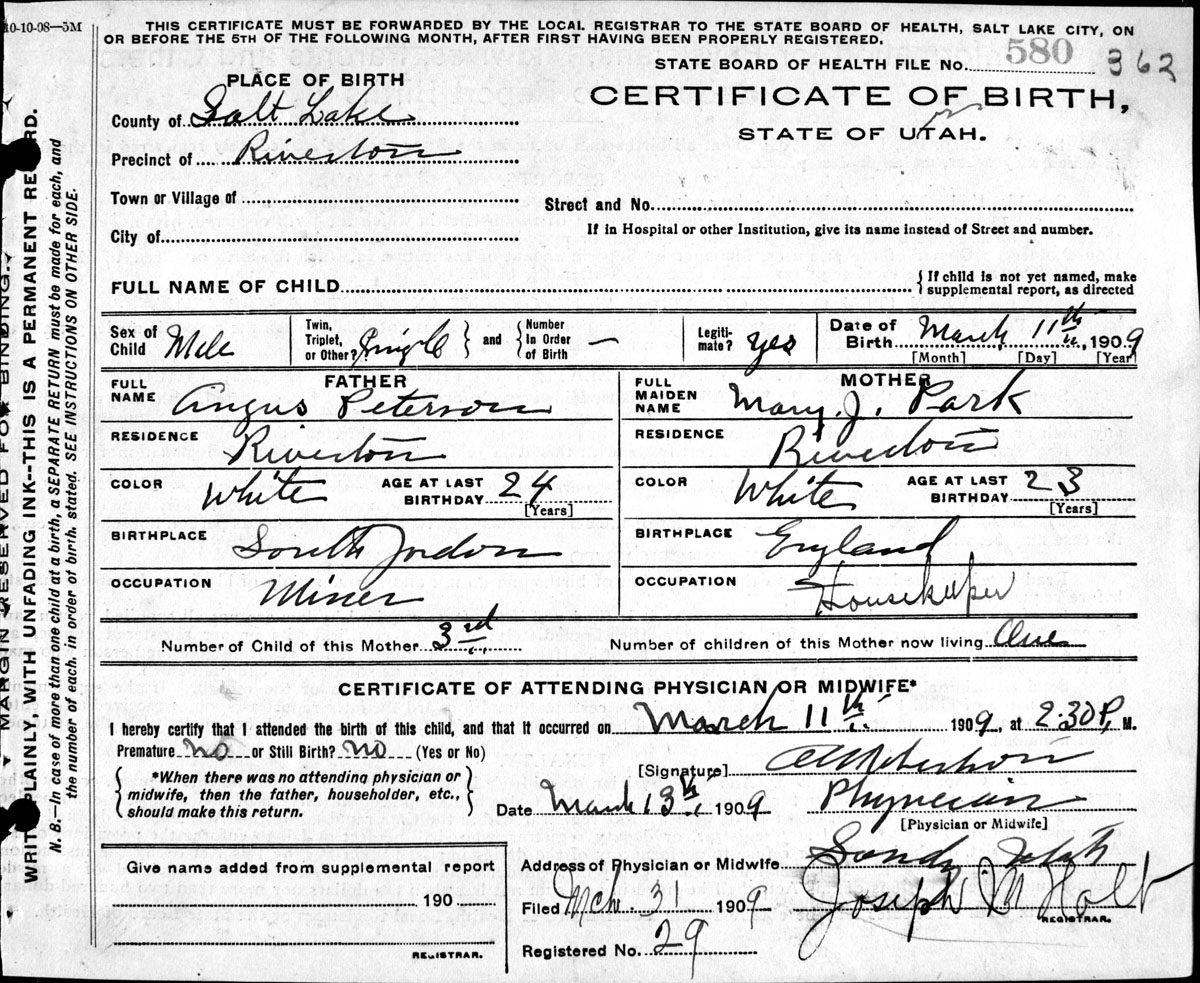 10-10-08—5M
THIS CERTIFICATE MUST BE FORWARDED BY THE LOCAL REGISTRAR TO THE STATE BOARD OF HEALTH, SALT LAKE CITY, ON
OR BEFORE THE 5TH OF THE FOLLOWING MONTH, AFTER FIRST HAVING BEEN PROPERLY REGISTERED.
STATE BOARD OF HEALTH FILE No. 580 362
PLACE OF BIRTH
CERTIFICATE OF BIRTH,
STATE OF UTAH.
County of Salt Lake
Precinct of Riverton
Town or Village of
Street and No.
City of
If in Hospital or other Institution, give its name instead of Street and number.
FULL NAME OF CHILD
{ If child is not yet named, make
supplemental report, as directed
Sex of Child Male
Twin, Triplet, or Other? Single } and { Number In Order of Birth —
Legiti-mate? Yes
Date of Birth March 11th, 1909
[Month] [Day] [Year]
FATHER
FULL NAME Angus Peterson
RESIDENCE Riverton
COLOR White AGE AT LAST BIRTHDAY 24
[Years]
BIRTHPLACE South Jordon
OCCUPATION Miner
MOTHER
FULL MAIDEN NAME Mary. J. Park
RESIDENCE Riverton
COLOR White AGE AT LAST BIRTHDAY 23
[Years]
BIRTHPLACE England
OCCUPATION Housekeeper
Number of Child of this Mother 3rd
Number of children of this Mother now living One
CERTIFICATE OF ATTENDING PHYSICIAN OR MIDWIFE*
I hereby certify that I attended the birth of this child, and that it occurred on March 11th 1909, at 2:30 P. M.
Premature no or Still Birth? no (Yes or No)
{ *When there was no attending physician or
midwife, then the father, householder, etc.,
should make this return. }
[Signature]
Date March 13th 1909
Physician
[Physician or Midwife]
Give name added from supplemental report
190
REGISTRAR.
Address of Physician or Midwife Sandy Utah
Filed Mch. 31 1909 Joseph M Holt
REGISTRAR.
Registered No. 29
MARGIN RESERVED FOR BINDING.
WRITE PLAINLY, WITH UNFADING INK--THIS IS A PERMANENT RECORD.
N. B.—In case of more than one child at a birth, a SEPARATE RETURN must be made for each, and
the number of each, in order of birth, stated. SEE INSTRUCTIONS ON OTHER SIDE.